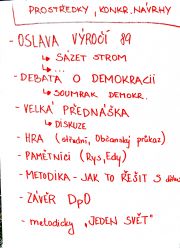 PROSTŘEDKY, KONKR. NÁVRHY
- OSLAVA VÝROČÍ 89
↳ SÁZET STROM
↳ ...
- DEBATA O DEMOKRACII
↳ SOUMRAK DEMOKR.
- VELKÁ PŘEDNÁŠKA
↳ DISKUZE
- HRA (střední, Občanský průkaz)
- PAMĚTNÍCI (Rys, Edy)
- METODIKA - JAK TO ŘEŠIT S dětmi
- ZÁVĚR DpD
- metodicky "JEDEN SVĚT"